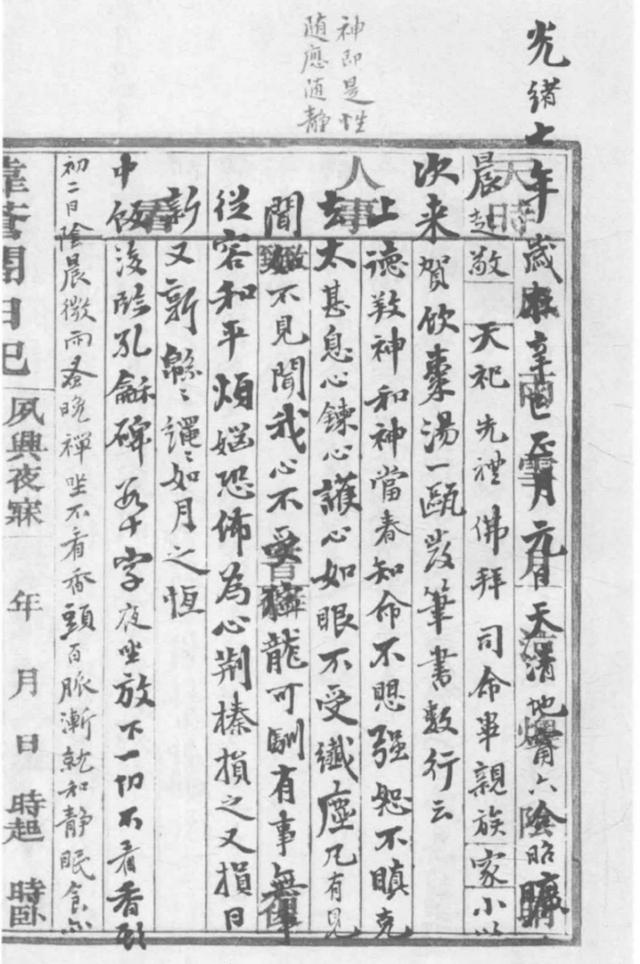 神即是性
随應随静
光緒七年歲在辛巳正月元日天清地甯六陰昭曠
晨起敬天祀先禮佛拜司命畢親族家小以
次来賀飲棗湯一甌發筆書数行云
上德敦神和神當春知命不思强恕不瞋克
去太甚息心鍊心護心如眼不受纖塵凡有見
聞如不見聞我心不受獰龍可馴有事無事
從容和平煩惱恐怖為心荆榛損之又損日
新又新緜緜繩繩如月之恆
中飯後臨孔龢碑若干字夜坐放下一切不看香頭
初二日陰晨微雨蚤晚禪坐不看香頭百脈漸就和静眠食亦
日記
夙興夜寐 年 月 日 時起 時卧